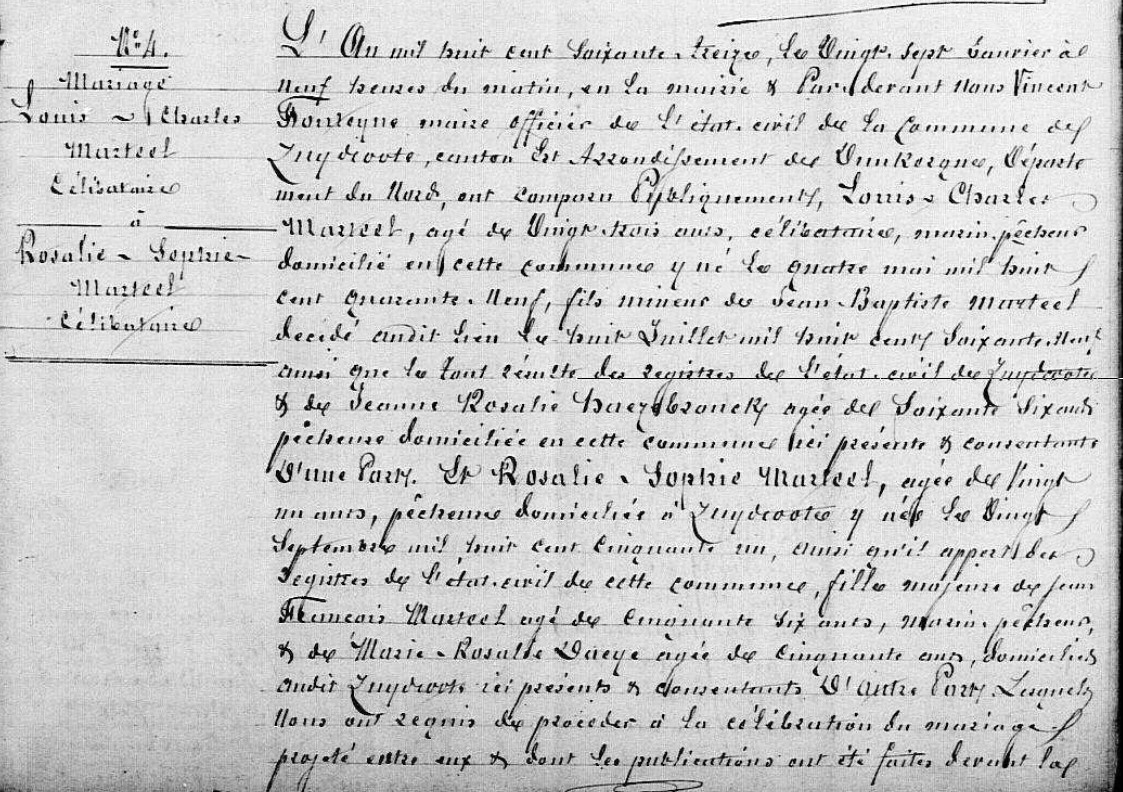 No 4.
Mariage
Louis ~ Charles
Marteel
Célibataire
à
Rosalie ~ Sophie ~
Marteel
Célibataire
L'An mil huit cent soixante-treize, le Vingt-sept Janvier à
neuf heures du matin, en la mairie & Par devant nous Vincent
maire officier de l'état-civil de la Commune de
Zuydcoote, canton Est Arrondissement de Dunkerque, Départe
ment du Nord, ont comparu Publiquement, Louis ~ Charles
Marteel, agé de Vingt-trois ans, célibataire, marin-pêcheur
domicilié en cette commune y né le quatre mai mil huit
cent quarante-neuf, fils mineur de Jean-Baptiste Marteel
decédé audit lieu le huit Juillet mil huit cent soixante-neuf
ainsi que le tout résulte des registres de l'état-civil de Zuydcoote
& de Jeanne Rosalie agée de Soixante six ans
pêcheuse domiciliée en cette commune ici présente & consentante
D'une Part. Et Rosalie ~ Sophie Marteel, agée de Vingt
un ans, pêcheuse domiciliée à Zuydcoote y née le Vingt
Septembre mil huit cent cinquante un, ainsi qu'il appert des
registres de l'état-civil de cette commune, fille majeure de Jean
François Marteel agé de cinquante six ans, marin-pêcheur,
& de Marie-Rosalie Daeye agée de cinquante ans, domiciliés
audit Zuydcoote ici présents & consentants D'autre Part. Lesquels
nous ont requis de procéder à la célébration du mariage
projeté entre eux & dont les publications ont été faites devant la